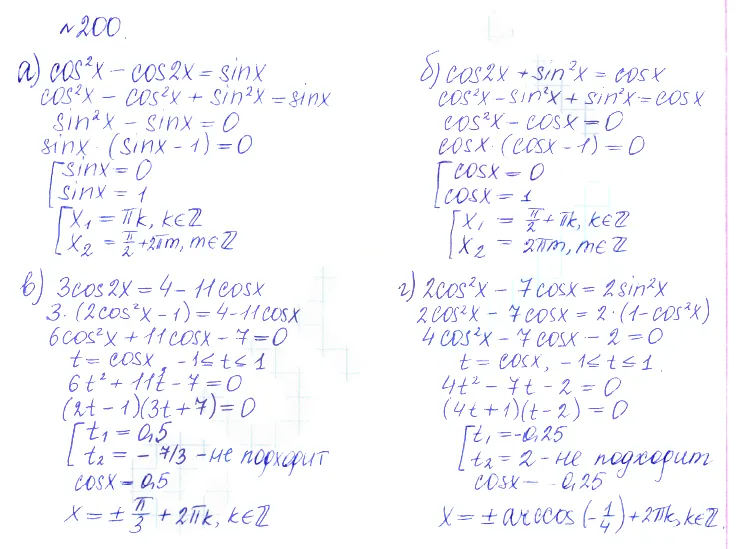 №200.
а) cos²x – cos2x = sinx
cos²x – cos²x + sin²x = sinx
sin²x – sinx = 0
sinx · (sinx – 1) = 0
[ sinx = 0
sinx = 1
[ x₁ = πk, k∈ℤ
x₂ = π/2 + 2πm, m∈ℤ
б) cos2x + sin²x = cosx
cos²x – sin²x + sin²x = cosx
cos²x – cosx = 0
cosx · (cosx – 1) = 0
[ cosx = 0
cosx = 1
[ x₁ = π/2 + πk, k∈ℤ
x₂ = 2πm, m∈ℤ
в) 3cos2x = 4 – 11cosx
3 · (2cos²x – 1) = 4 – 11cosx
6cos²x + 11cosx – 7 = 0
t = cosx, –1 ≤ t ≤ 1
6t² + 11t – 7 = 0
(2t – 1)(3t + 7) = 0
[ t₁ = 0,5
t₂ = – 7/3 – не подходит
cosx = 0,5
x = ± π/3 + 2πk, k∈ℤ
г) 2cos²x – 7cosx = 2sin²x
2cos²x – 7cosx = 2·(1 – cos²x)
4cos²x – 7cosx – 2 = 0
t = cosx, –1 ≤ t ≤ 1.
4t² – 7t – 2 = 0
(4t + 1)(t – 2) = 0
[ t₁ = –0,25
t₂ = 2 – не подходит
cosx = –0,25
x = ± arccos(–1/4) + 2πk, k∈ℤ.